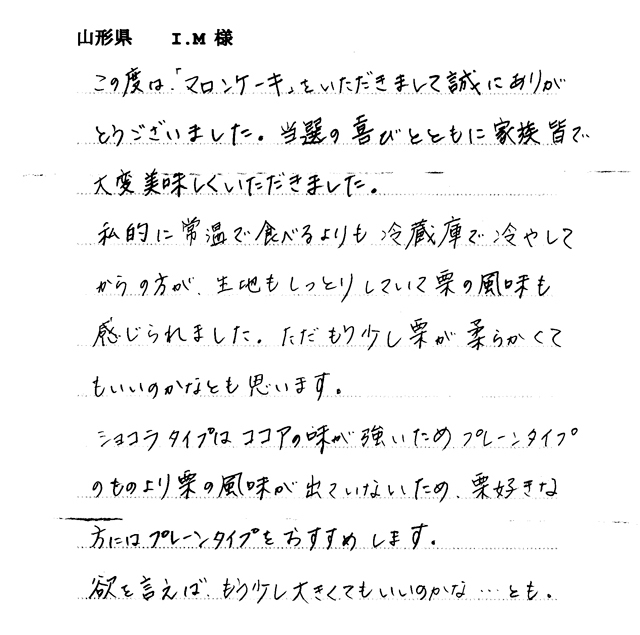 山形県 I.M 様
この度は、「マロンケーキ」をいただきまして誠にありが
とうございました。当選の喜びとともに家族皆で
大変美味しくいただきました。
私的に常温で食べるよりも冷蔵庫で冷やして
からの方が、生地もしっとりしていて栗の風味も
感じられました。ただもう少し栗が柔らかくて
もいいのかなとも思います。
ショコラタイプはココアの味が強いためプレーンタイプ
のものより栗の風味が出ていないため、栗好きな
方にはプレーンタイプをおすすめします。
欲を言えば、もう少し大きくてもいいのかな…とも。